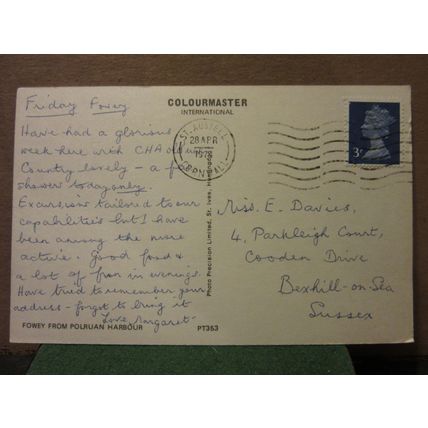 COLOURMASTER
INTERNATIONAL
Friday Fowey
Have had a glorious
week here with CHA
Country lovely - a few
showers today only.
Excursions tailored to our
capabilities but I have
been among the more
active. Good food &
a lot of fun in evenings.
Have tried to remember your
address - forgot to bring it
Love, Margaret-
FOWEY FROM POLRUAN HARBOUR PT363
Photo Precision Limited, St. Ives,
ST. AUSTELL
28 APR
CORNWALL
3
Miss. E. Davies,
4, Parkleigh Court,
Cooden Drive
Bexhill-on-Sea
Sussex